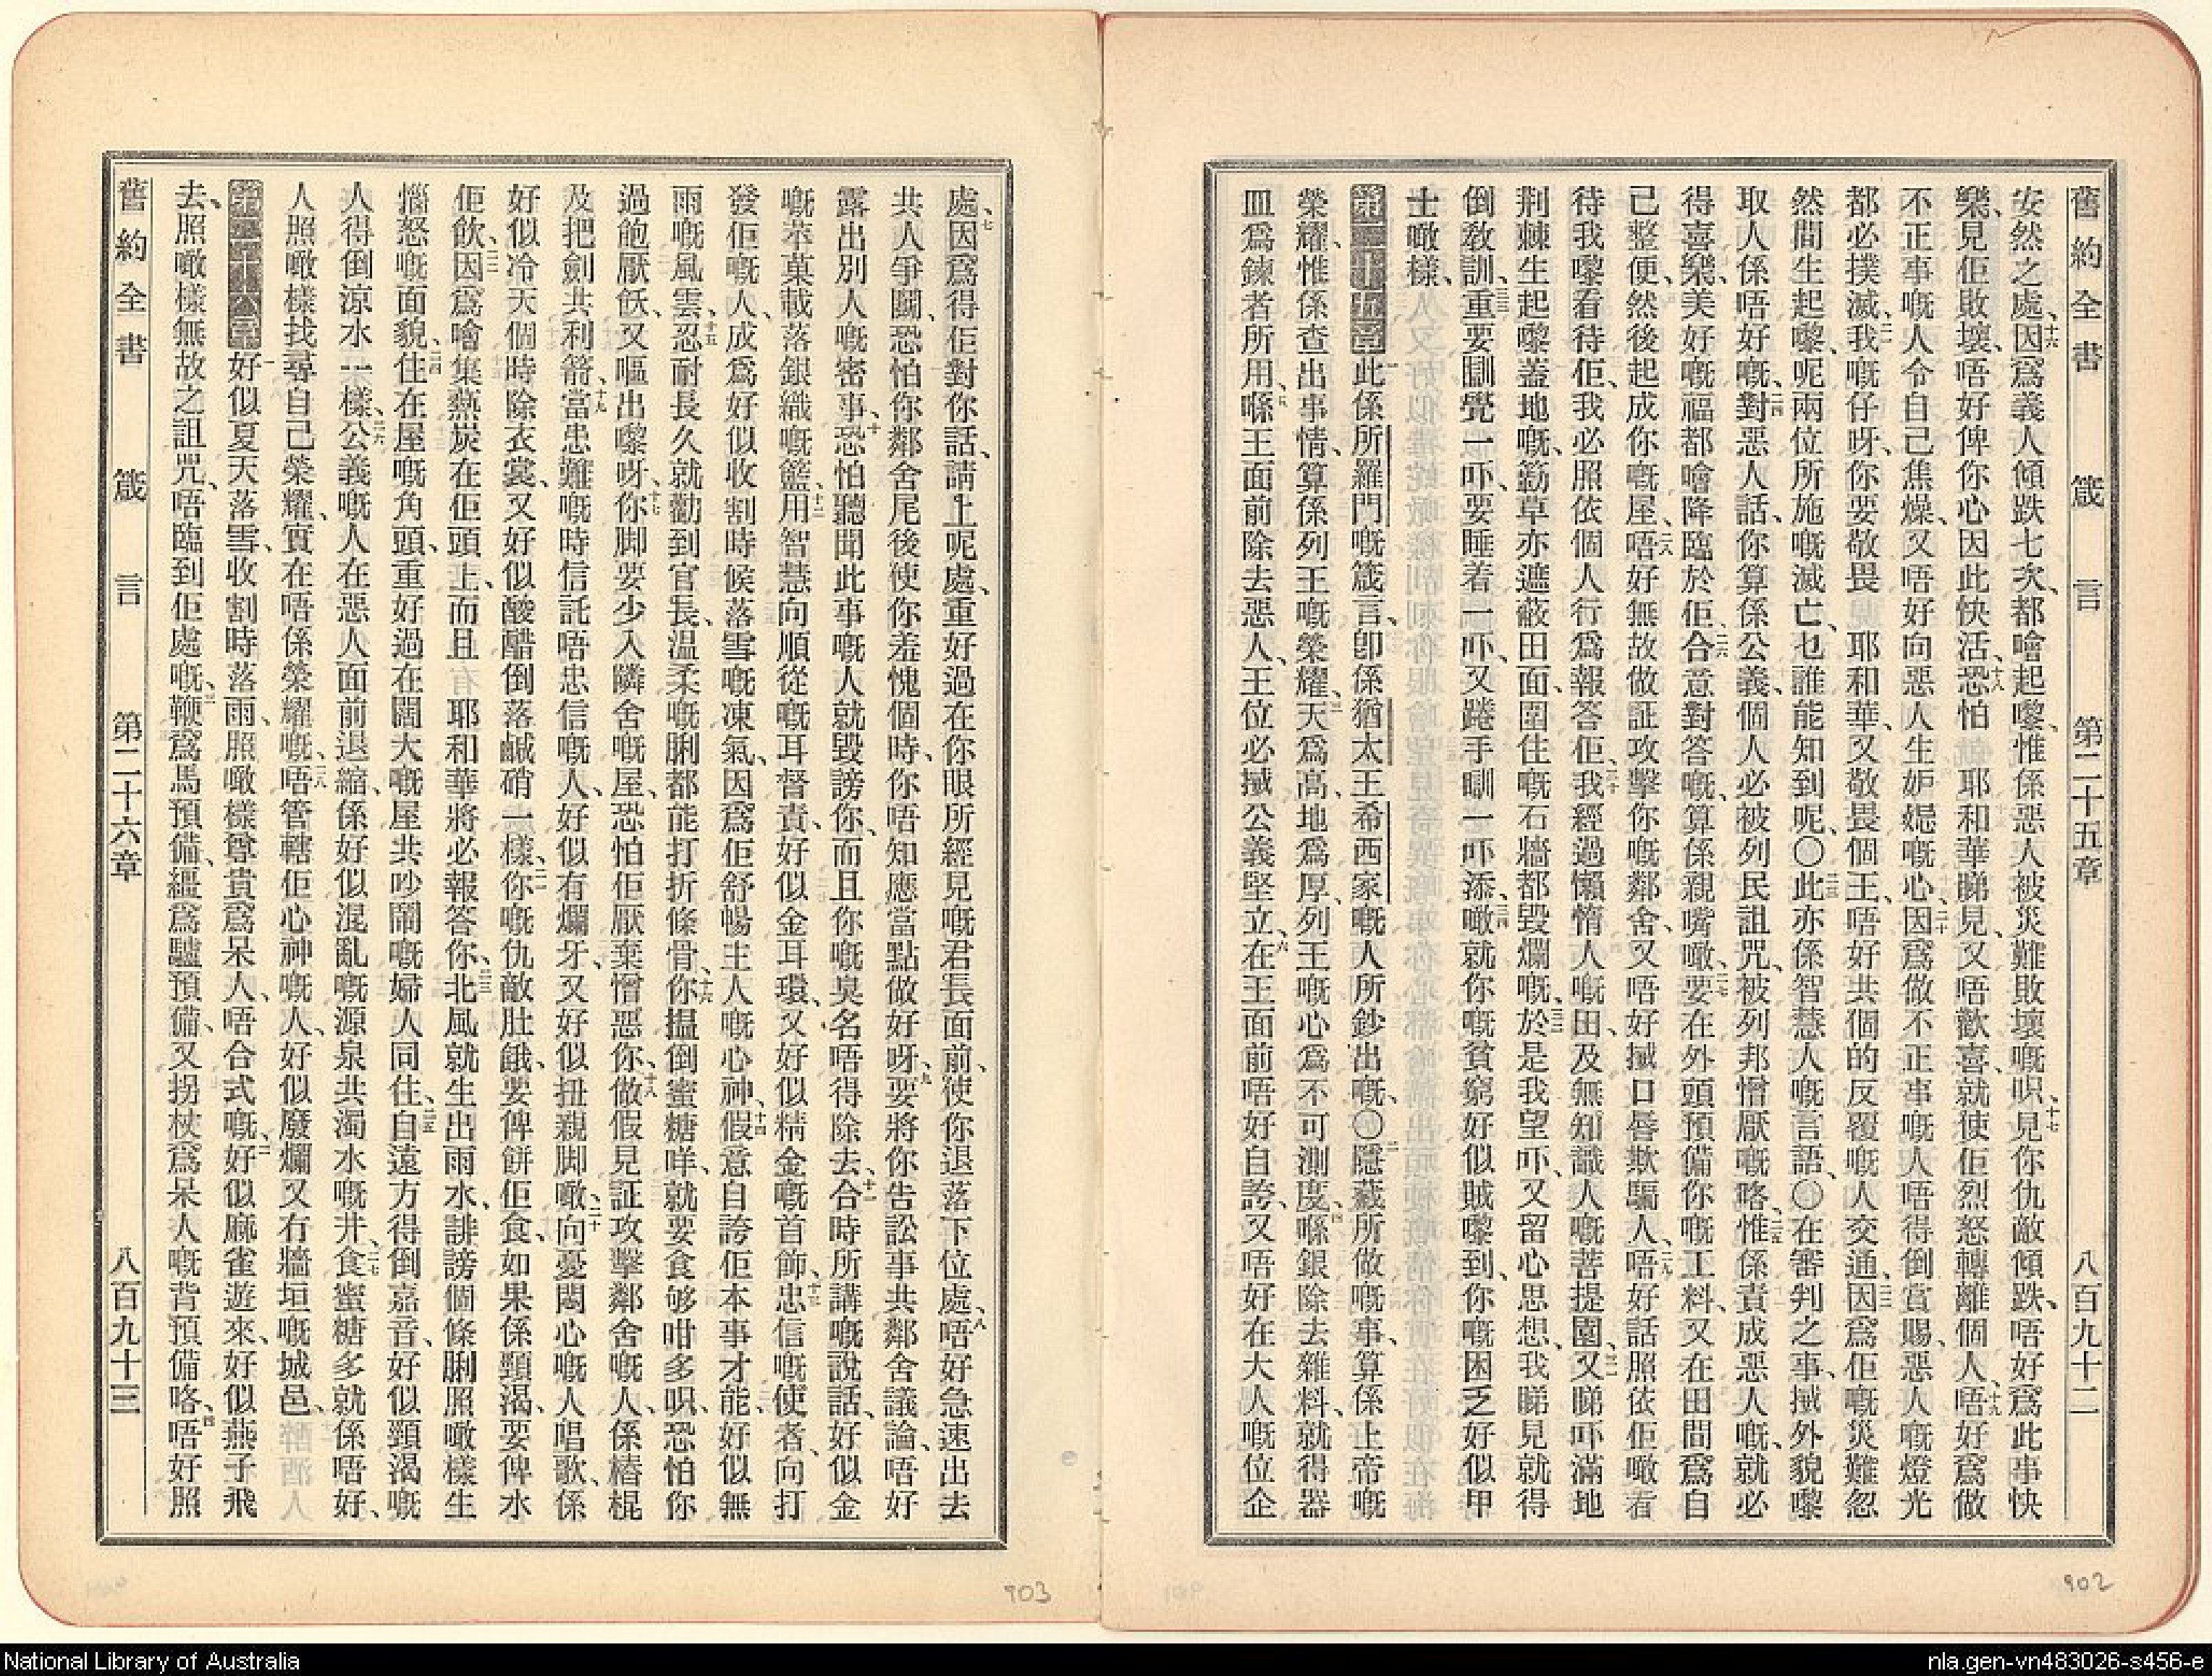 舊約全書　箴言　第二十五章　八百九十二
安然之處、十六因爲義人傾跌七次、都噲起嚟、惟係惡人被災難敗壞嘅呮、十七見你仇敵傾跌、唔好爲此事快
樂、見佢敗壞、唔好俾你心因此快活、十八恐怕　耶和華睇見、又唔歡喜、就使佢烈怒轉離個人、十九唔好爲做
不正事嘅人令自己焦燥、又唔好向惡人生妒嫓嘅心、二十因爲做不正事嘅人唔得倒賞賜、惡人嘅燈光
都必撲滅、二一我嘅仔呀、你要敬畏　耶和華、又敬畏個王、唔好共個的反覆嘅人交通、二二因爲佢嘅災難忽
然間生起嚟、呢兩位所施嘅滅亡、乜誰能知到呢、〇二三此亦係智慧人嘅言語、〇在審判之事、搣外貌嚟
取人係唔好嘅、二四對惡人話、你算係公義、個人必被列民詛咒、被列邦憎厭嘅咯、二五惟係責成惡人嘅、就必
得喜樂、美好嘅福都噲降臨於佢、二六合意對答嘅、算係親嘴噉、二七要在外頭預備你嘅工料、又在田間爲自
己整便、然後起成你嘅屋、二八唔好無故做証攻擊你嘅鄰舍、又唔好搣口唇欺騙人、二九唔好話照依佢噉看
待我嚟看待佢、我必照依個人行爲報答佢、三十我經過懶惰人嘅田、及無知識人嘅菩提園、三一又睇吓滿地
荆棘生起嚟、蓋地嘅、簕草亦遮蔽田面、圍住嘅石牆都毀爛嘅、三二於是我望吓、又留心思想、我睇見就得
倒敎訓、三三重要瞓覺一吓、要睡着一吓、又踡手瞓一吓添、三四噉就你嘅貧窮好似賊嚟到、你嘅困乏好似甲
士噉樣、
第二十五章　一此係所羅門嘅箴言、卽係猶太王希西家嘅人所鈔出嘅、〇二隱藏所做嘅事、算係上帝嘅
榮耀、惟係查出事情、算係列王嘅榮耀、三天爲高、地爲厚、列王嘅心爲不可測度、四喺銀除去雜料、就得器
皿爲鍊者所用、五喺王面前除去惡人、王位必搣公義堅立、六在王面前唔好自誇、又唔好在大人嘅位企
902
處、七因爲得佢對你話、請上呢處、重好過在你眼所經見嘅君長面前、使你退落下位處、八唔好急速出去
共人爭鬬、恐怕你鄰舍尾後使你羞愧個時、你唔知應當點做好呀、九要將你告訟事共鄰舍議論、唔好
露出別人嘅密事、十恐怕聽聞此事嘅人就毀謗你、而且你嘅臭名唔得除去、十一合時所講嘅說話、好似金
嘅苹菓載落銀織嘅籃、十二用智慧向順從嘅耳督責、好似金耳環、又好似精金嘅首飾、十三忠信嘅使者、向打
發佢嘅人、成爲好似收割時候落雪嘅凍氣、因爲佢舒暢主人嘅心神、十四假意自誇佢本事才能、好似無
雨嘅風雲、十五忍耐長久就勸到官長、溫柔嘅脷都能打折條骨、十六你揾倒蜜糖咩、就要食够咁多呮、恐怕你
過飽厭飫、又嘔出嚟呀、十七你脚要少入隣舍嘅屋、恐怕佢厭棄憎惡你、十八做假見証攻擊鄰舍嘅人、係㮔棍
及把劍共利箭、十九當患難嘅時信託唔忠信嘅人、好似有爛牙、又好似扭親脚噉、二十向憂悶心嘅人唱歌、係
好似冷天個時除衣裳、又好似酸醋倒落鹹硝一樣、二一你嘅仇敵肚餓、要俾餅佢食、如果係頸渴、要俾水
佢飮、二二因爲噲集熱炭在佢頭上、而且　耶和華將必報答你、二三北風就生出雨水、誹謗個條脷照噉樣生
惱怒嘅面貌、二四住在屋嘅角頭、重好過在闊大嘅屋共吵鬧嘅婦人同住、二五自遠方得倒嘉音、好似頸渴嘅
人得倒凉水一樣、二六公義嘅人在惡人面前退縮、係好似混亂嘅源泉共濁水嘅井、二七食蜜糖多就係唔好、
人照噉樣找尋自己榮耀、實在唔係榮耀嘅、二八唔管轄佢心神嘅人、好似廢爛又冇牆垣嘅城邑、
第二十六章　一好似夏天落雪、收割時落雨、照噉樣尊貴爲呆人、唔合式嘅、二好似麻雀遊來、好似燕子飛
去、照噉樣無故之詛咒、唔臨到佢處嘅、三鞭爲馬預備、繮爲驢預備、又拐杖爲呆人嘅背預備咯、四唔好照
舊約全書　箴言　第二十六章　八百九十三
903
National Library of Australia
nla.gen-vn483026-s456-e